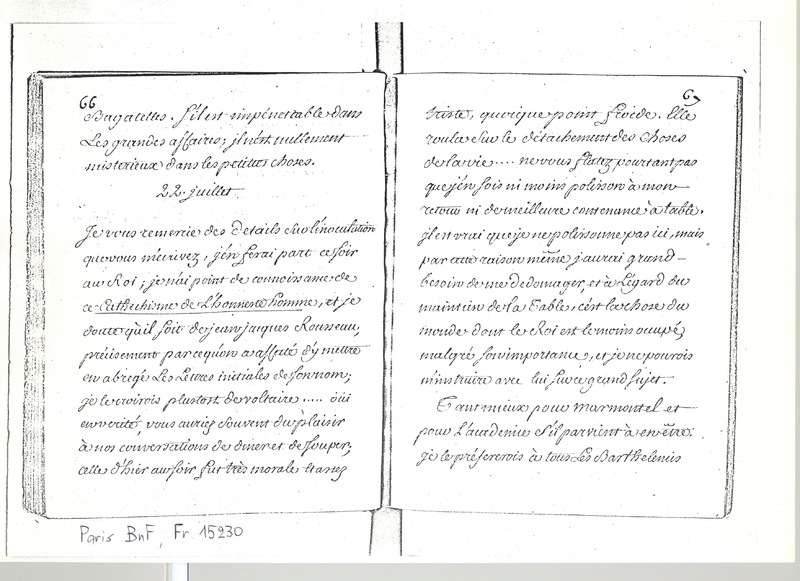 66
Bagatelles. s'il est impénétrable dans
Les grandes affaires; il n'est nullement
misterieux dans les petittes choses.
22. juillet
Je vous remercie des details sur l'inoculation
que vous m'écrivez, j'en ferai part ce soir
au Roi; je n'ai point de connoissance de
ce Cathéchisme de L'honneste homme, et je
doute qu'il soit de jean jacques Rousseau,
précisement parcequ'on a affecté d'y mettre
en abregé Les Lettres initiales de son nom;
je le croirois plustost de voltaire ..... oüi
en verité, vous auriez souvent du plaisir
à nos conversations de diner et de souper;
celle d'hier au soir fut très morale et assez
67
triste, quoique point froide. Elle
roula sur le détachement des choses
de la vie .... ne vous flatez pourtant pas
que j'en sois ni moins polisson à mon
retour ni de meilleure contenance à table.
il est vrai que je ne polissonne pas ici, mais
par cette raison même j'aurai grand
besoin de me dedomager, et à L'égard du
maintien de la Table, c'est la chose du
monde dont le Roi est le moins occupé,
malgré son importance, et je ne pourois
m'instruire avec lui sur ce grand sujet.
Tant mieux pour Marmontel et
pour L'academie s'il parvient à en être.
je le préfererois à tous Les Barthelemis
Paris BnF, Fr. 15230